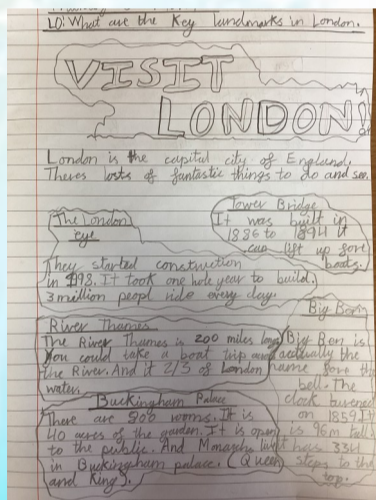 LO: What are the Key landmarks in London.
VISIT
LONDON!
London is the capital city of England.
Theres losts of fantastic things to do and see.
The London
eye
They started construction
in 1998. It took one hole year to build.
3 million peopl ride every day.
Tower Bridge
It was built in
1886 to 1894 it
cun lift up fore
boats.
River Thames
The River Thames is 200 miles long
You could take a boat trip
the River. And it 2/3 of London
water.
Big Ben
Big Ben is
actually the
name fore the
bell. The
clock
on 1859 It
is 96m tall
has 334
steps to the
top.
Buckingham Palace
There are 800 rooms. It is
40 acres of the garden. It is open
to the public. And Monarchs
in Buckingham palace. (Queen
and King).